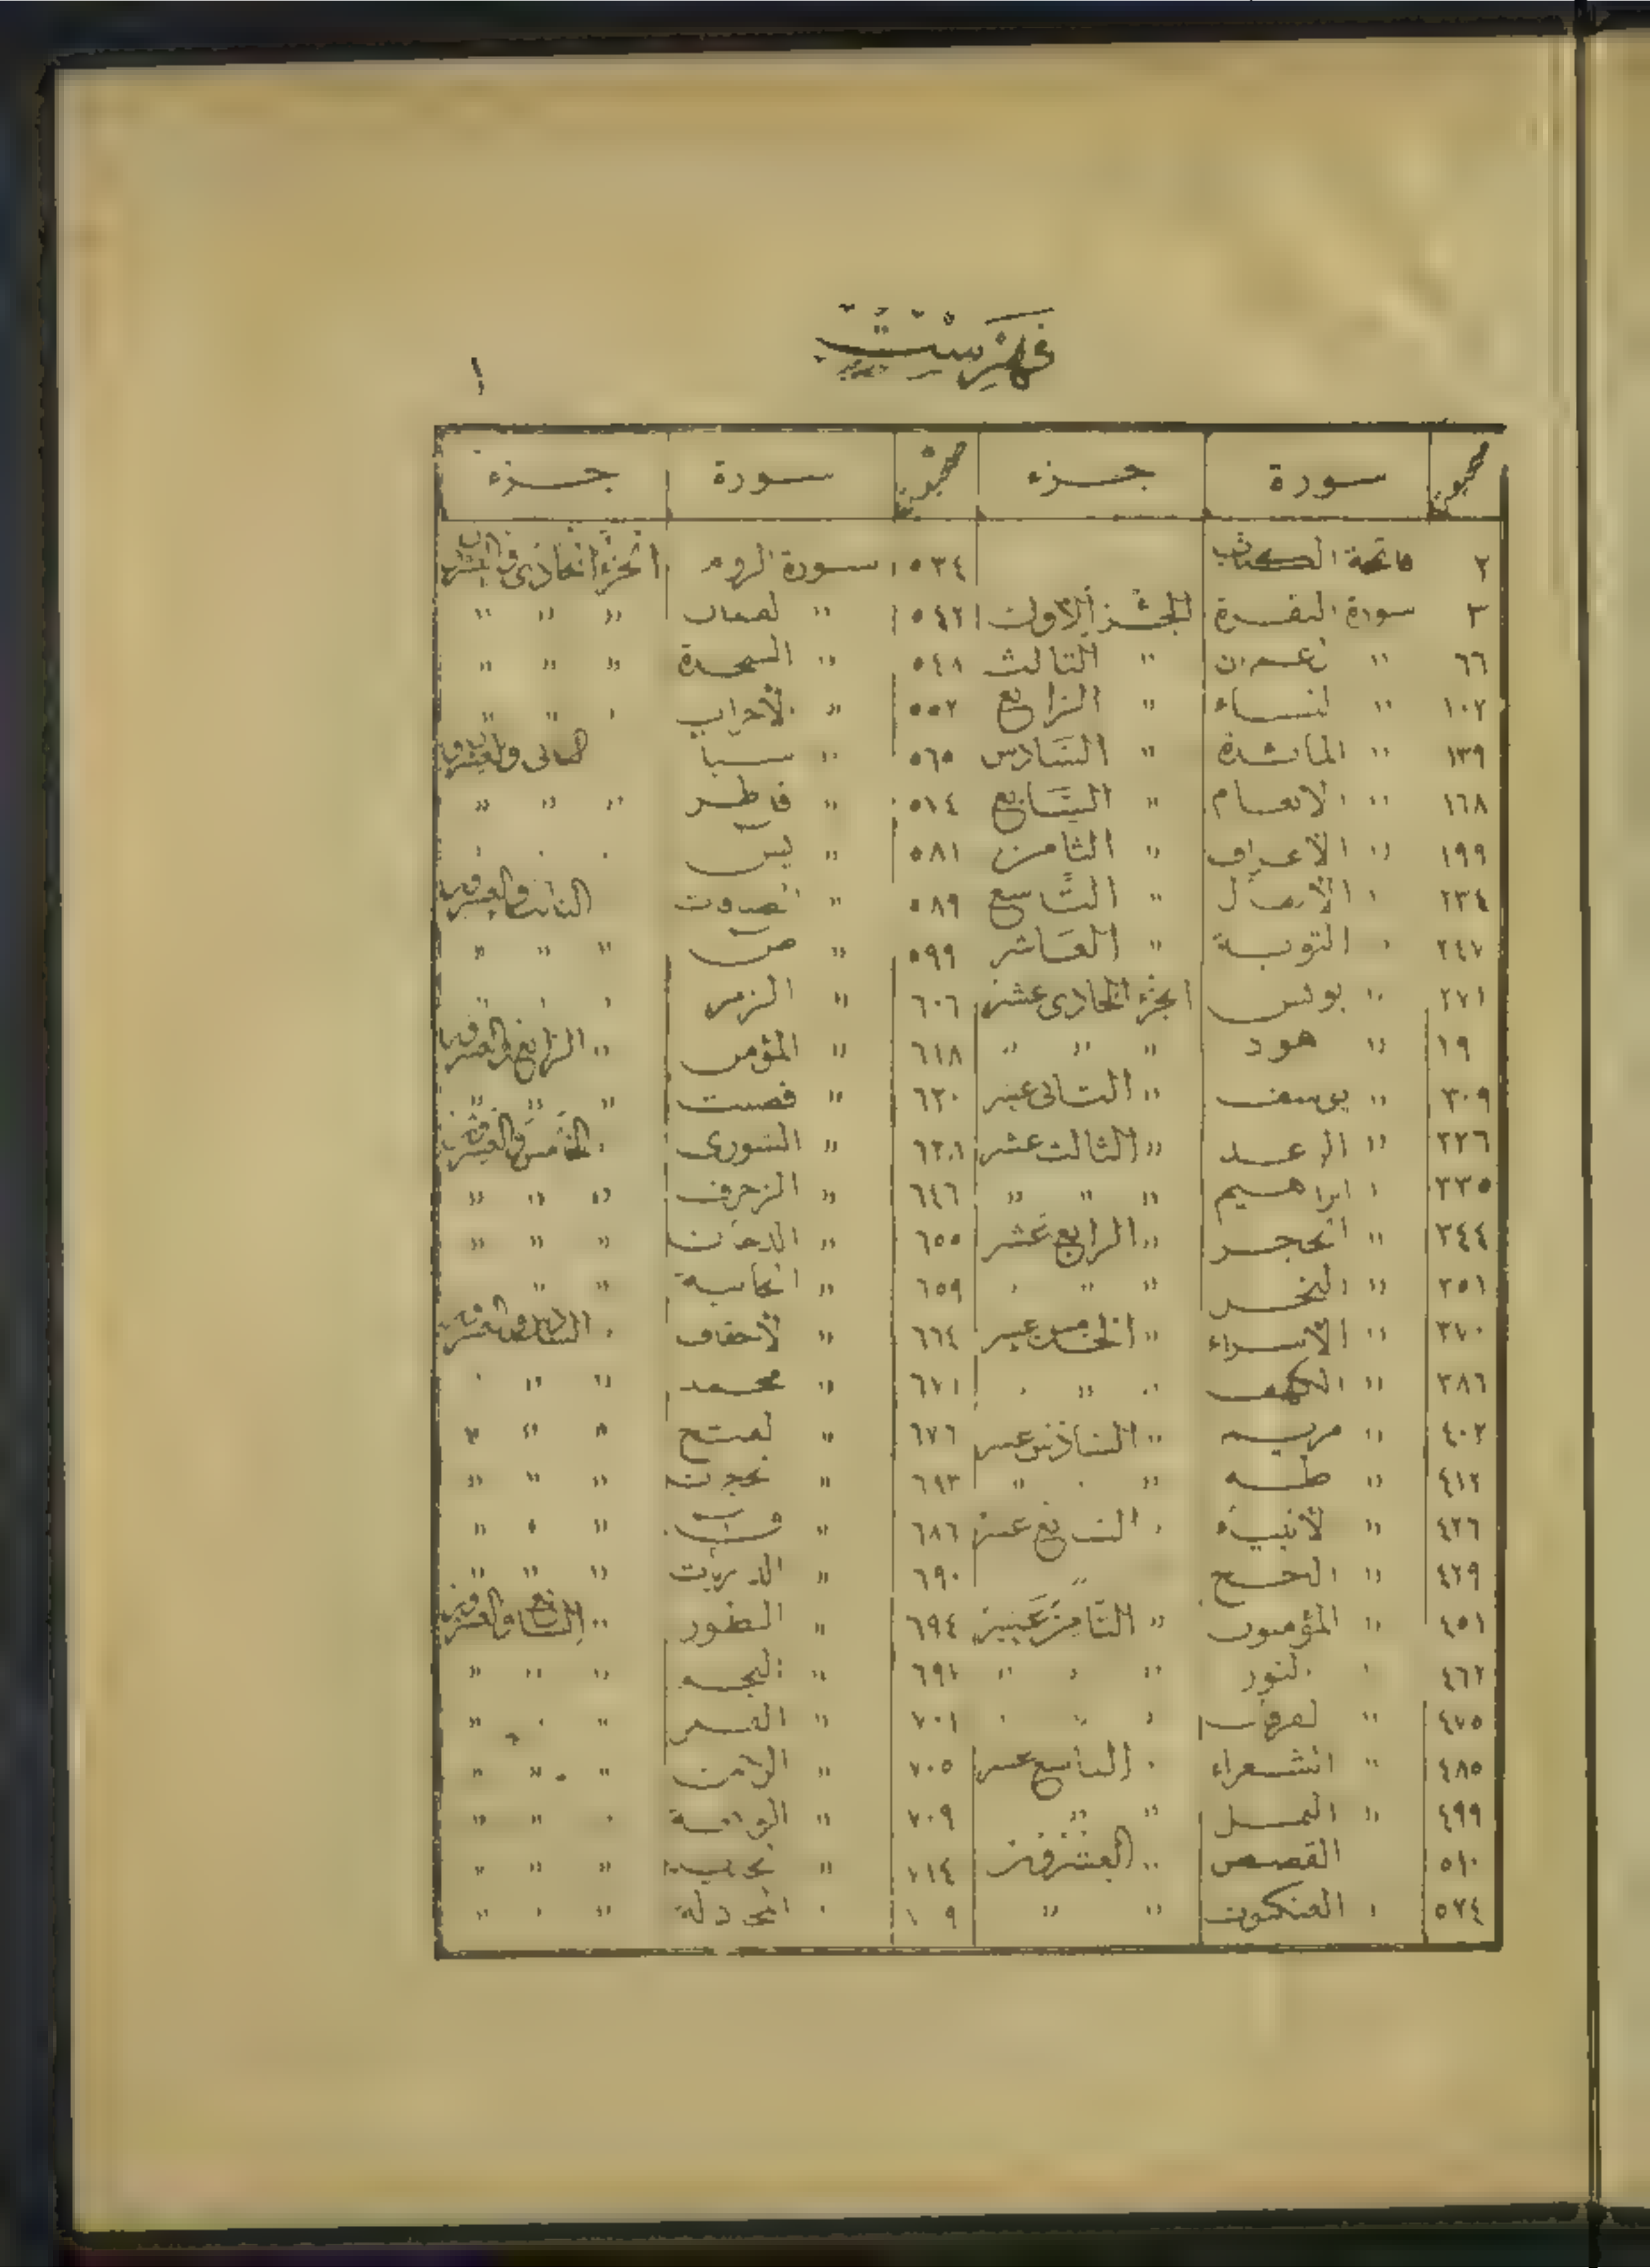 فهرست
١
صحيفة سورة جزء صحيفة سورة جزء
٢ فاتحة الكتاب ٥٣٤ سورة الروم الجزء الحادى والعشرون
٣ سورة البقرة الجزء الاول ٥٤٢ " لقمان " " "
٦٦ " عمران " الثالث ٥٤٨ " السجدة " " "
١٠٢ " النساء " الرابع ٥٥٢ " الأحزاب " " "
١٣٩ " المائدة " السادس ٥٦٥ " سبا الثانى والعشرون
١٦٨ " الانعام " السابع ٥١٤ " فاطر " " "
١٩٩ " الاعراف " الثامن ٥٨١ " يس " " "
٢٣٤ " الأنفال " التاسع ٥٨٩ " الصافات الثالث والعشرون
٢٤٧ " التوبة " العاشر ٥٩٩ " ص " " "
٢٧١ " يونس الجزء الحادى عشر ٦٠٦ " الزمر " " "
١٩ " هود " " " ٦١٨ " المؤمن " الرابع والعشرون
٣٠٩ " يوسف " الثانى عشر ٦٣٠ " فصلت " " "
٣٢٦ " الرعد " الثالث عشر ٦٣٨ " الشورى " الخامس والعشرون
٣٣٥ " ابراهيم " " " ٦٤٦ " الزخرف " " "
٣٤٤ " الحجر " الرابع عشر ٦٥٥ " الدخان " " "
٣٥١ " النحل " " " ٦٥٩ " الجاثية " "
٣٧٠ " الاسراء " الخامس عشر ٦٦٤ " الأحقاف " السادس والعشرون
٣٨٦ " الكهف " " " ٦٧١ " محمد " " "
٤٠٢ " مريم " السادس عشر ٦٧٦ " الفتح " " "
٤١٢ " طه " " " ٦٩٣ " الحجرات " " "
٤٢٦ " الأنبياء " السابع عشر ٦٨٦ " ق " " "
٤٣٩ " الحج ٦٩٠ " الذريت " " "
٤٥١ " المؤمنون " الثامن عشر ٦٩٤ " الطور " السابع والعشرون
٤٦٢ " النور " " " ٦٩٨ " النجم " " "
٤٧٥ " الفرقان " " " ٧٠١ " القمر " " "
٤٨٥ " الشعراء " التاسع عشر ٧٠٥ " الرحمن " " "
٤٩٩ " النمل " " ٧٠٩ " الواقعة " " "
٥١٠ القصص " العشرون ٧١٤ " الحديد " " "
٥٢٤ " العنكبوت " " " المجادلة " " "